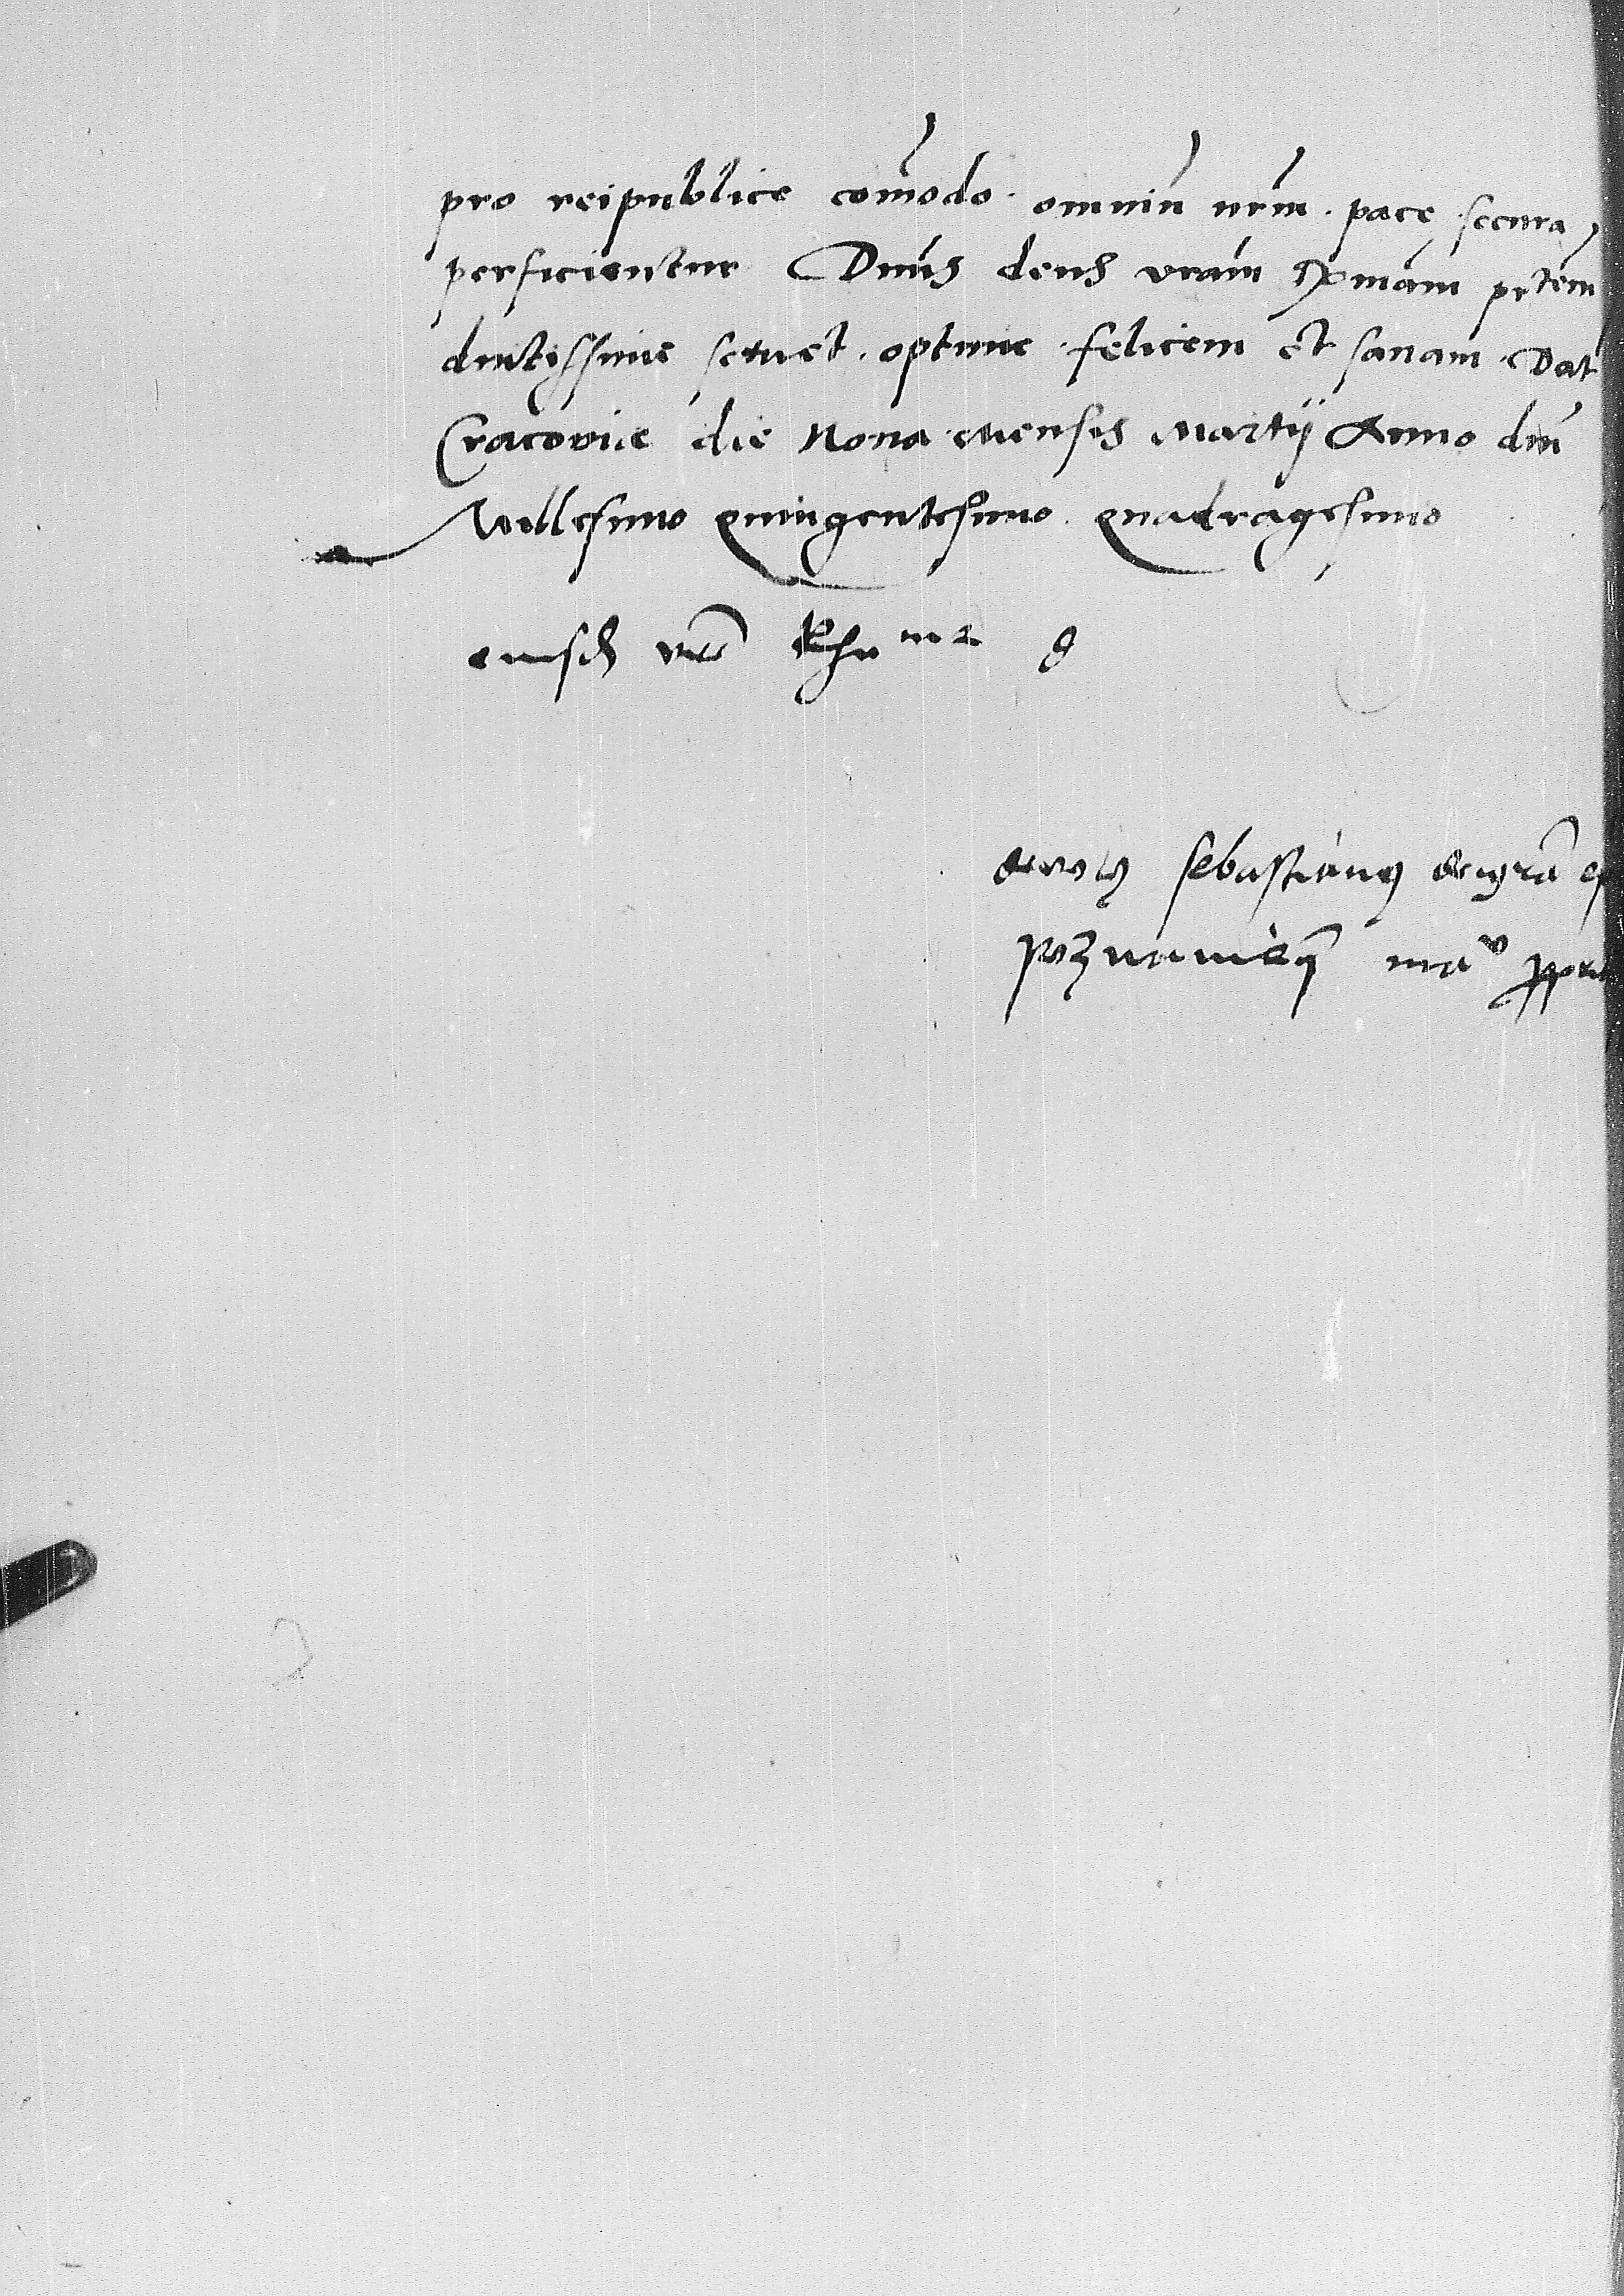 pro reipublice com̄odo · omniū nr̄m · pace secura
perficientur Dn̄us deus vr̄am Xmam pr̄tem
diutissime seruet · optime · felicem et sanam · Dat
Cracovie die Nona mensis Martij Anno dn̄i
Millesimo quingentesimo quadragesimo
eiusdē vr̄e
Sebastianus dei gr̄a ep
poznanieñ ma° pp